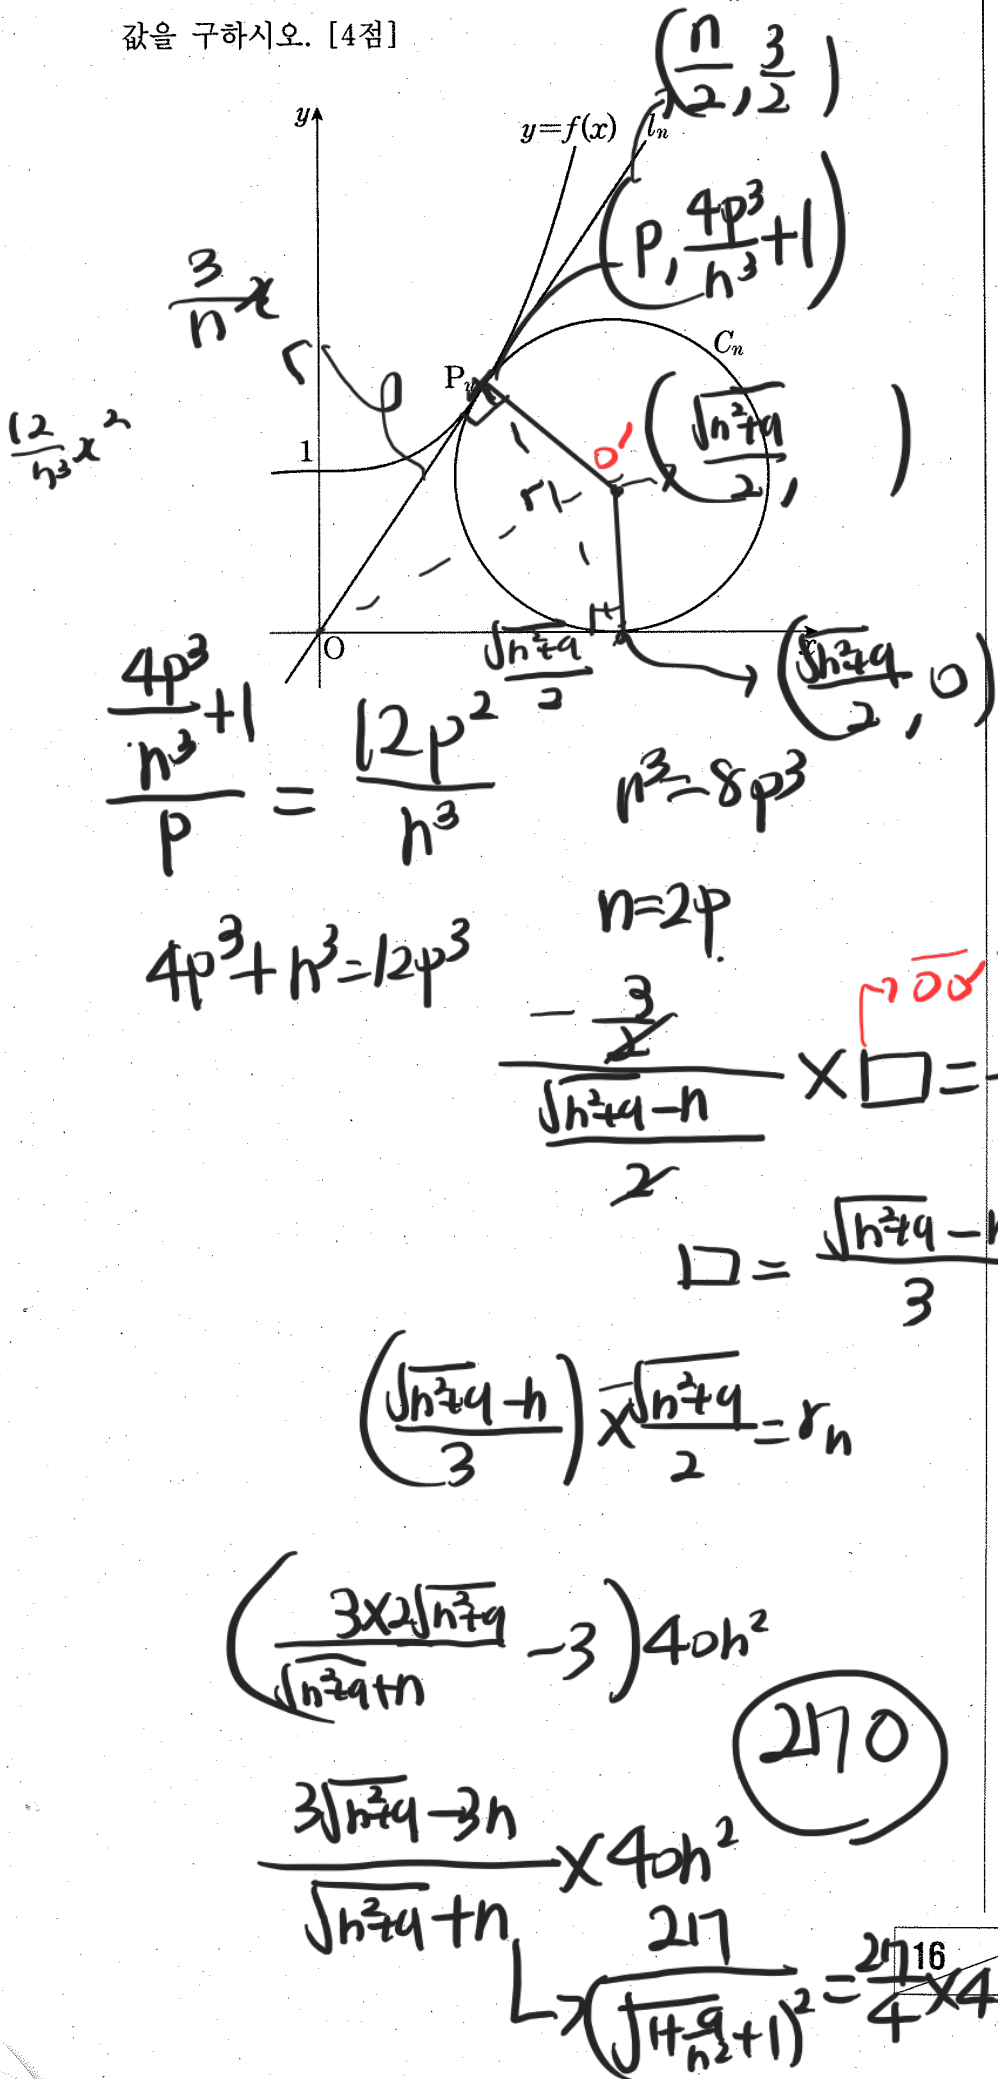 값을 구하시오. [4점]
(n/2, 3/2)
y
y=f(x)
l_n
(p, 4p³/n³+1)
3/n x
r
C_n
P_n
12/n³ x²
1
O'
(√(n²+9)/2, )
O
√(n²+9)/2
x
(√(n²+9)/2, 0)
(4p³/n³+1)/p = 12p²/n³
n³=8p³
n=2p
4p³+n³=12p³
→ OO'
(-3/2)/((√(n²+9)-n)/2) × □ = -
□ = (√(n²+9)-n)/3
((√(n²+9)-n)/3) × √(n²+9)/2 = r_n
(3×2√(n²+9)/(√(n²+9)+n) -3)40n²
270
(3√(n²+9)-3n)/(√(n²+9)+n) × 40n²
↳ 27/(√(1+9/n²)+1)² = 27/4 ×4
16